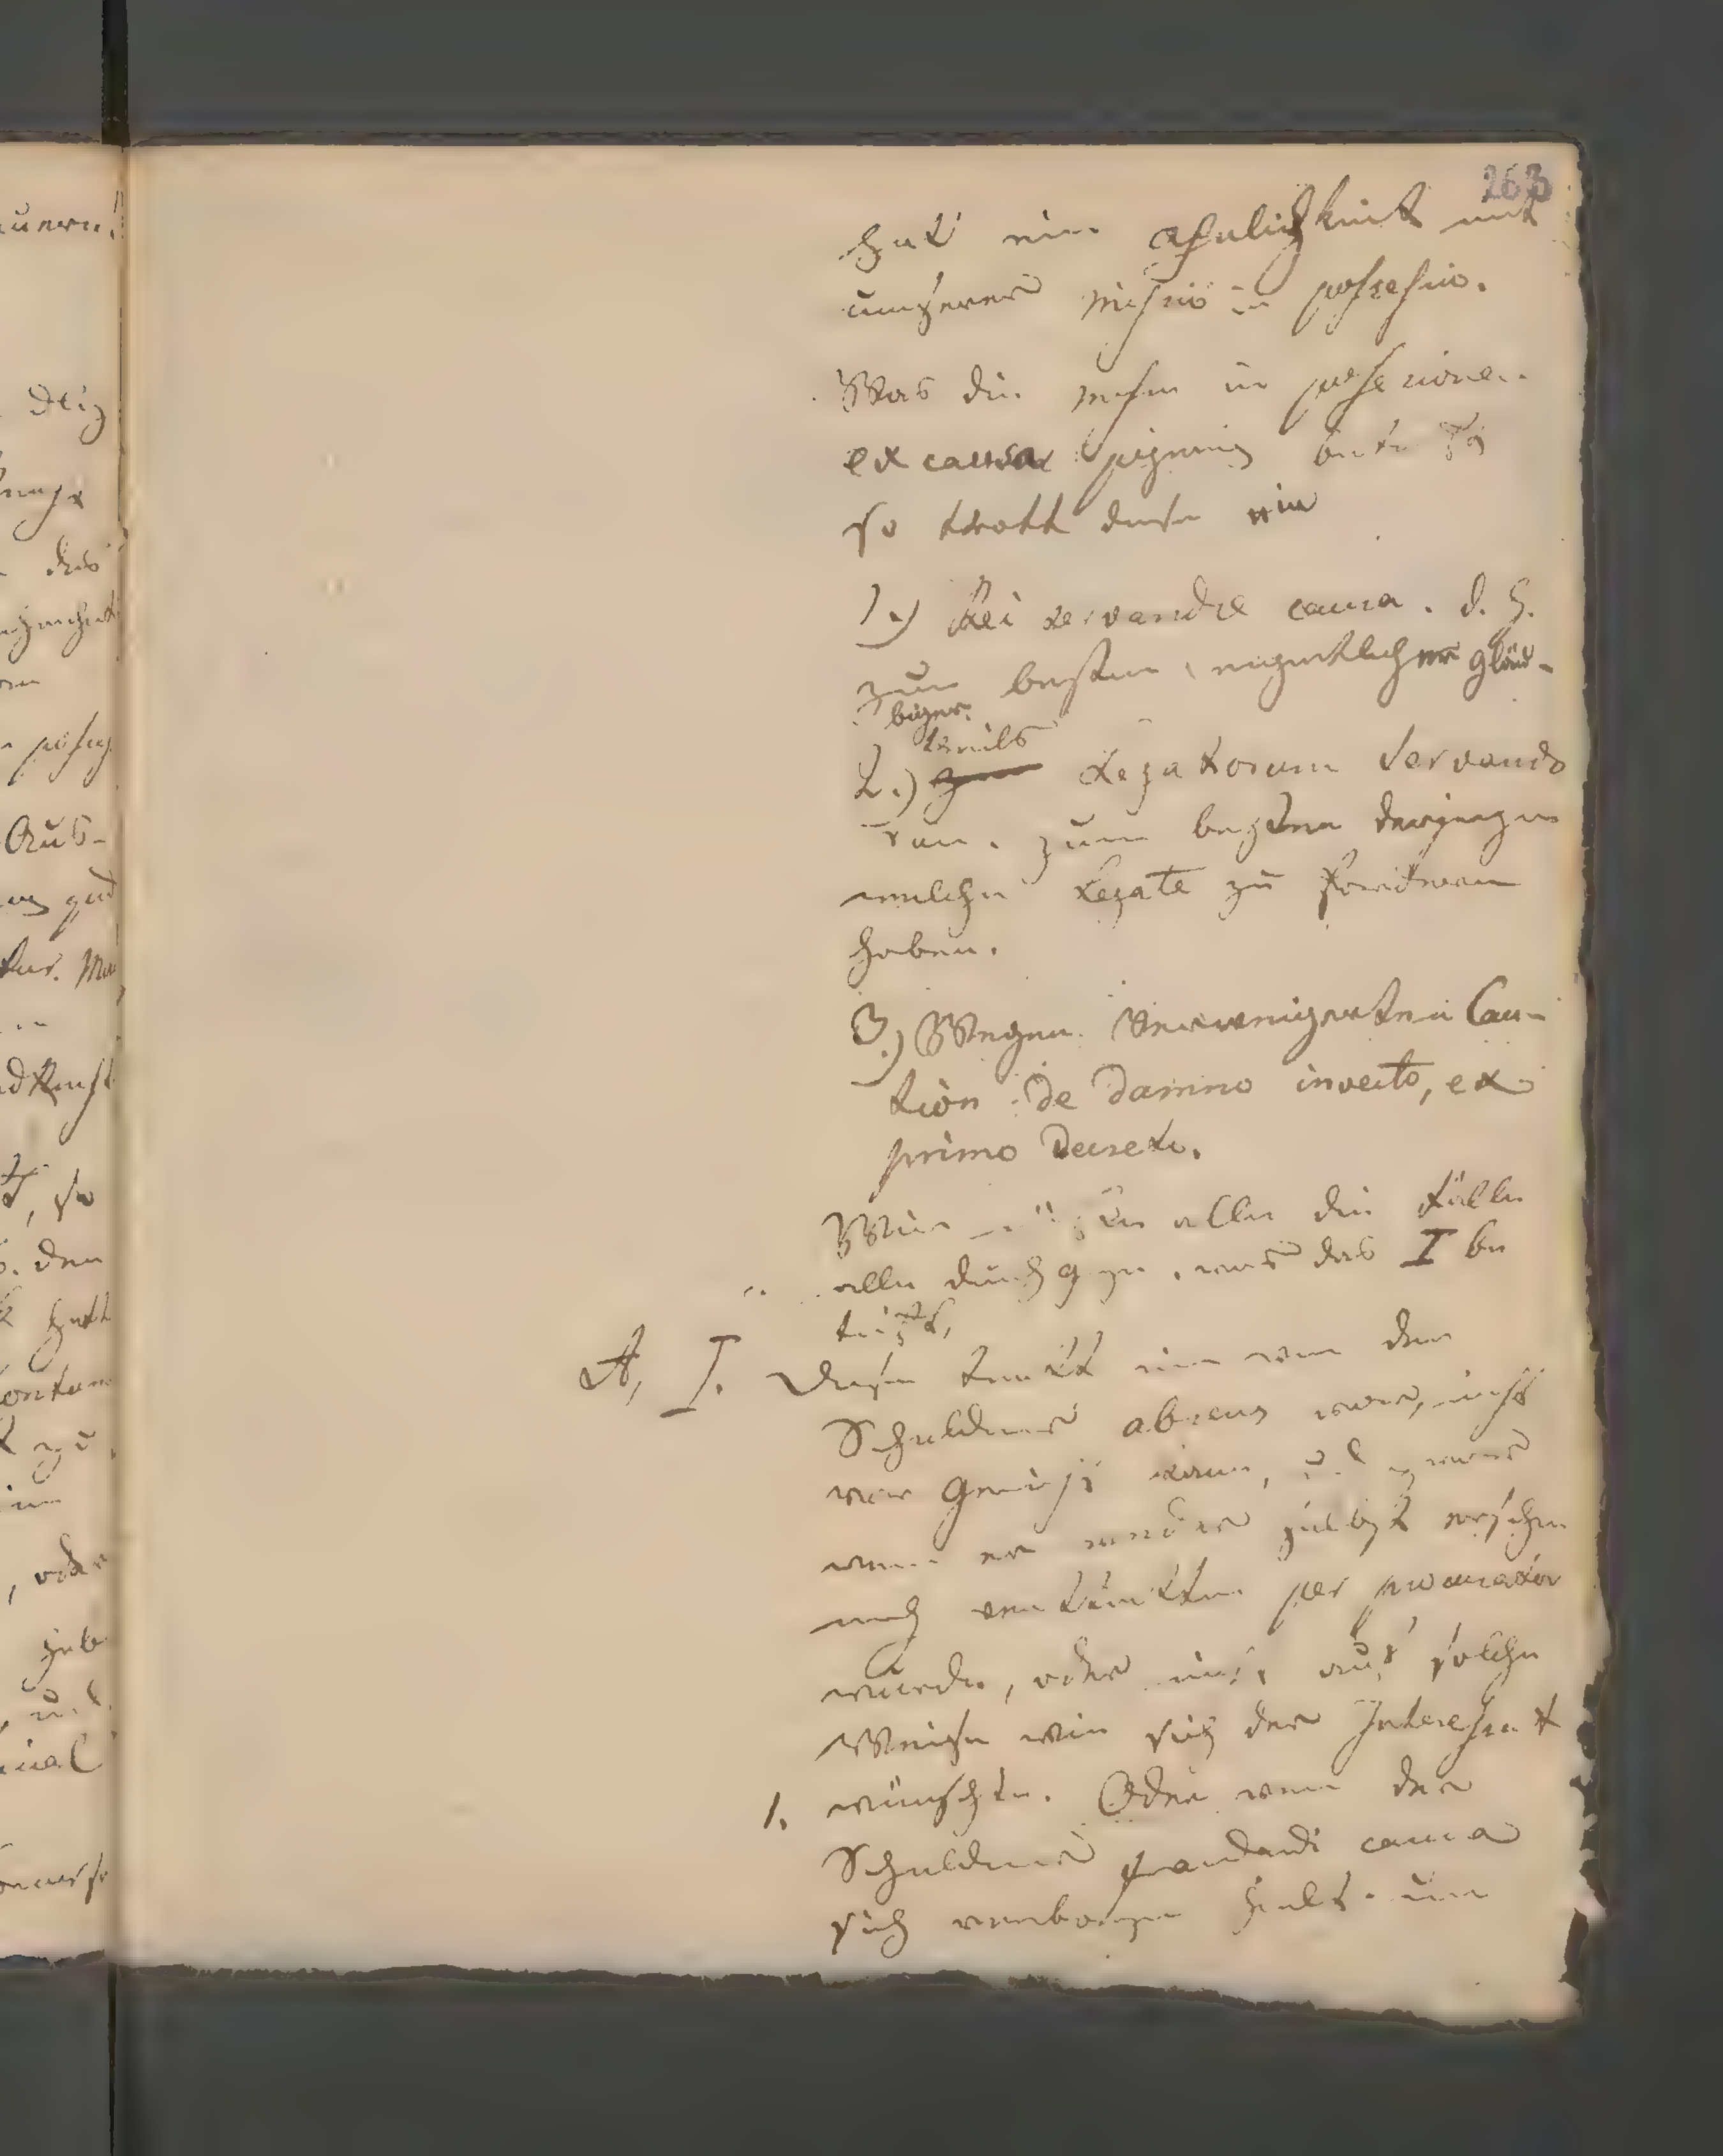 263
hat eine Ahnlichkeit mit
unserer missio in possessio.
Was die missio in possessionem
ex causa pignoris betrifft
so tritt diese ein
1.) Rei servandae causa. d. h.
zum besten eigentlicher Gläu-
biger.
theils
2.) Legatorum servando
rum. zum besten derjenigen
welche Legate zu fordern
haben.
3.) Wegen verweigerten Cau-
tion de damno infecto, ex
primo Decreto.
Wir müßen alle die Fälle
alle durchgehen, was das I be
trift,
A, I. Diese tritt ein wen der
Schuldner absens war, nicht
vor Gericht kam, und zwar
wenn er weder selbst erschien
noch vertretten per procurator
wurde, oder nicht auf solche
Weise wie sich der Interessent
1. wünschte. Oder wen der
Schuldner fraudandi causa
sich verborgen hielt. um